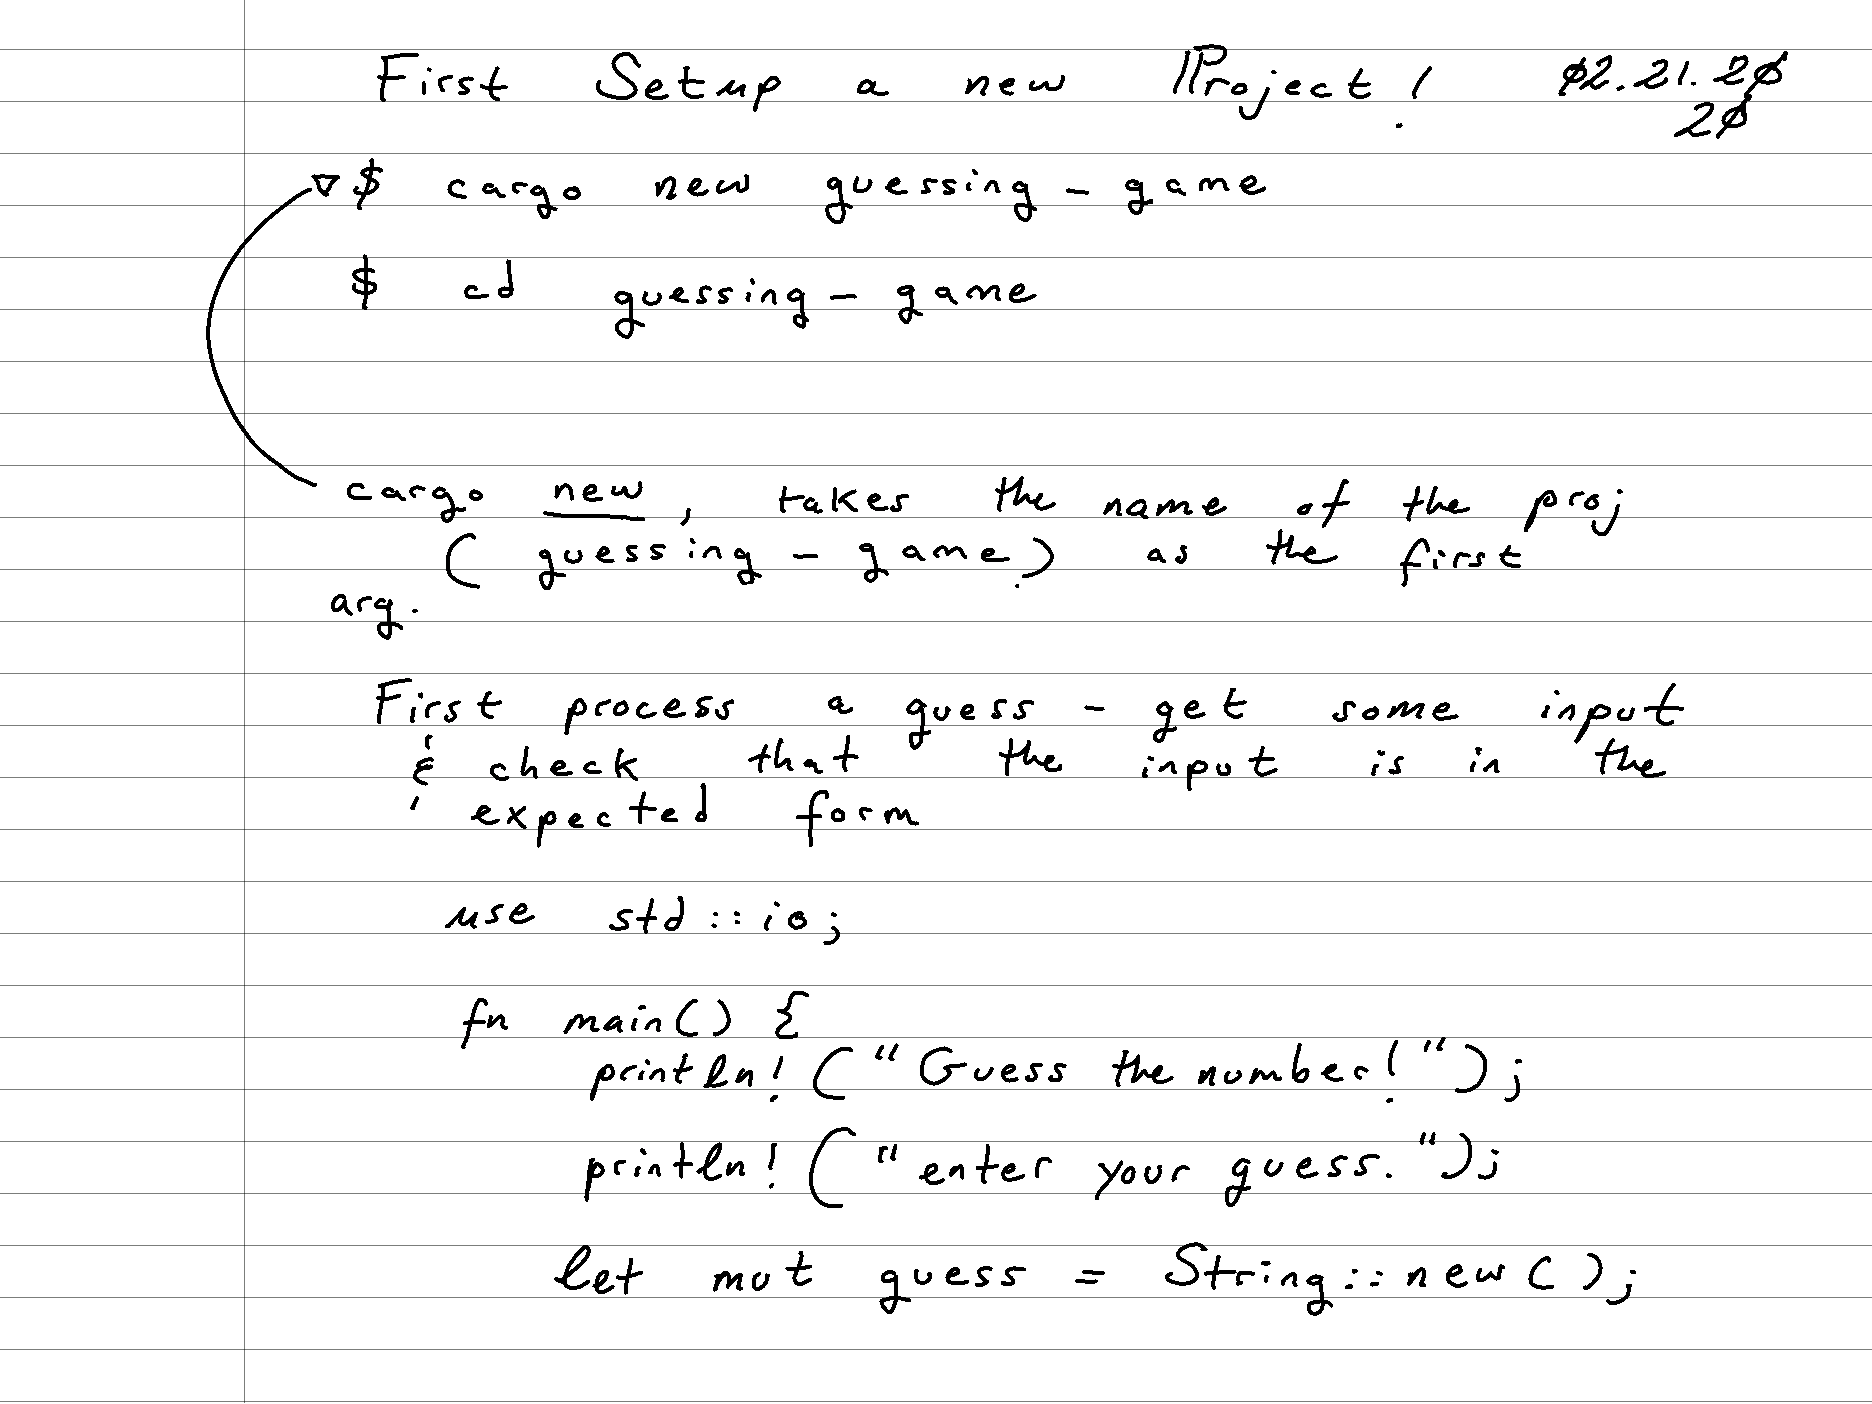 First Setup a new Project! 02.21.20
20
$ cargo new guessing-game
$ cd guessing-game
cargo new, takes the name of the proj
(guessing-game) as the first
arg.
First process a guess - get some input
& check that the input is in the
expected form
use std::io;
fn main() {
println!("Guess the number!");
println!("enter your guess.");
let mut guess = String::new();